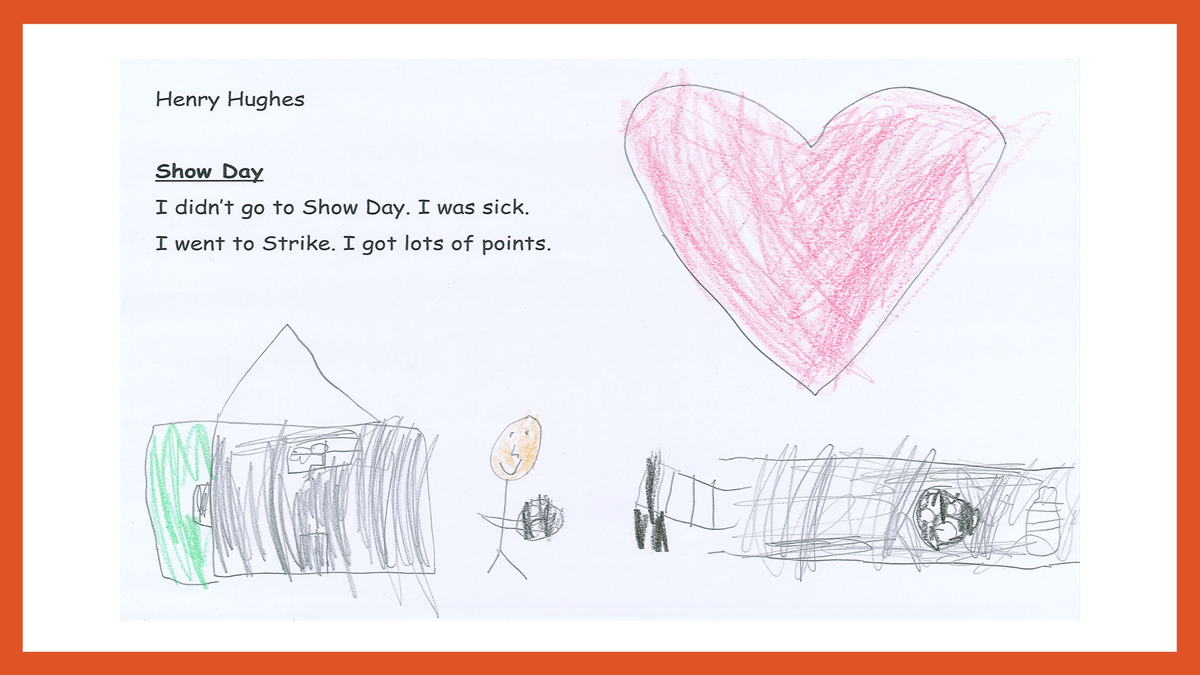 Henry Hughes
Show Day
I didn't go to Show Day. I was sick.
I went to Strike. I got lots of points.